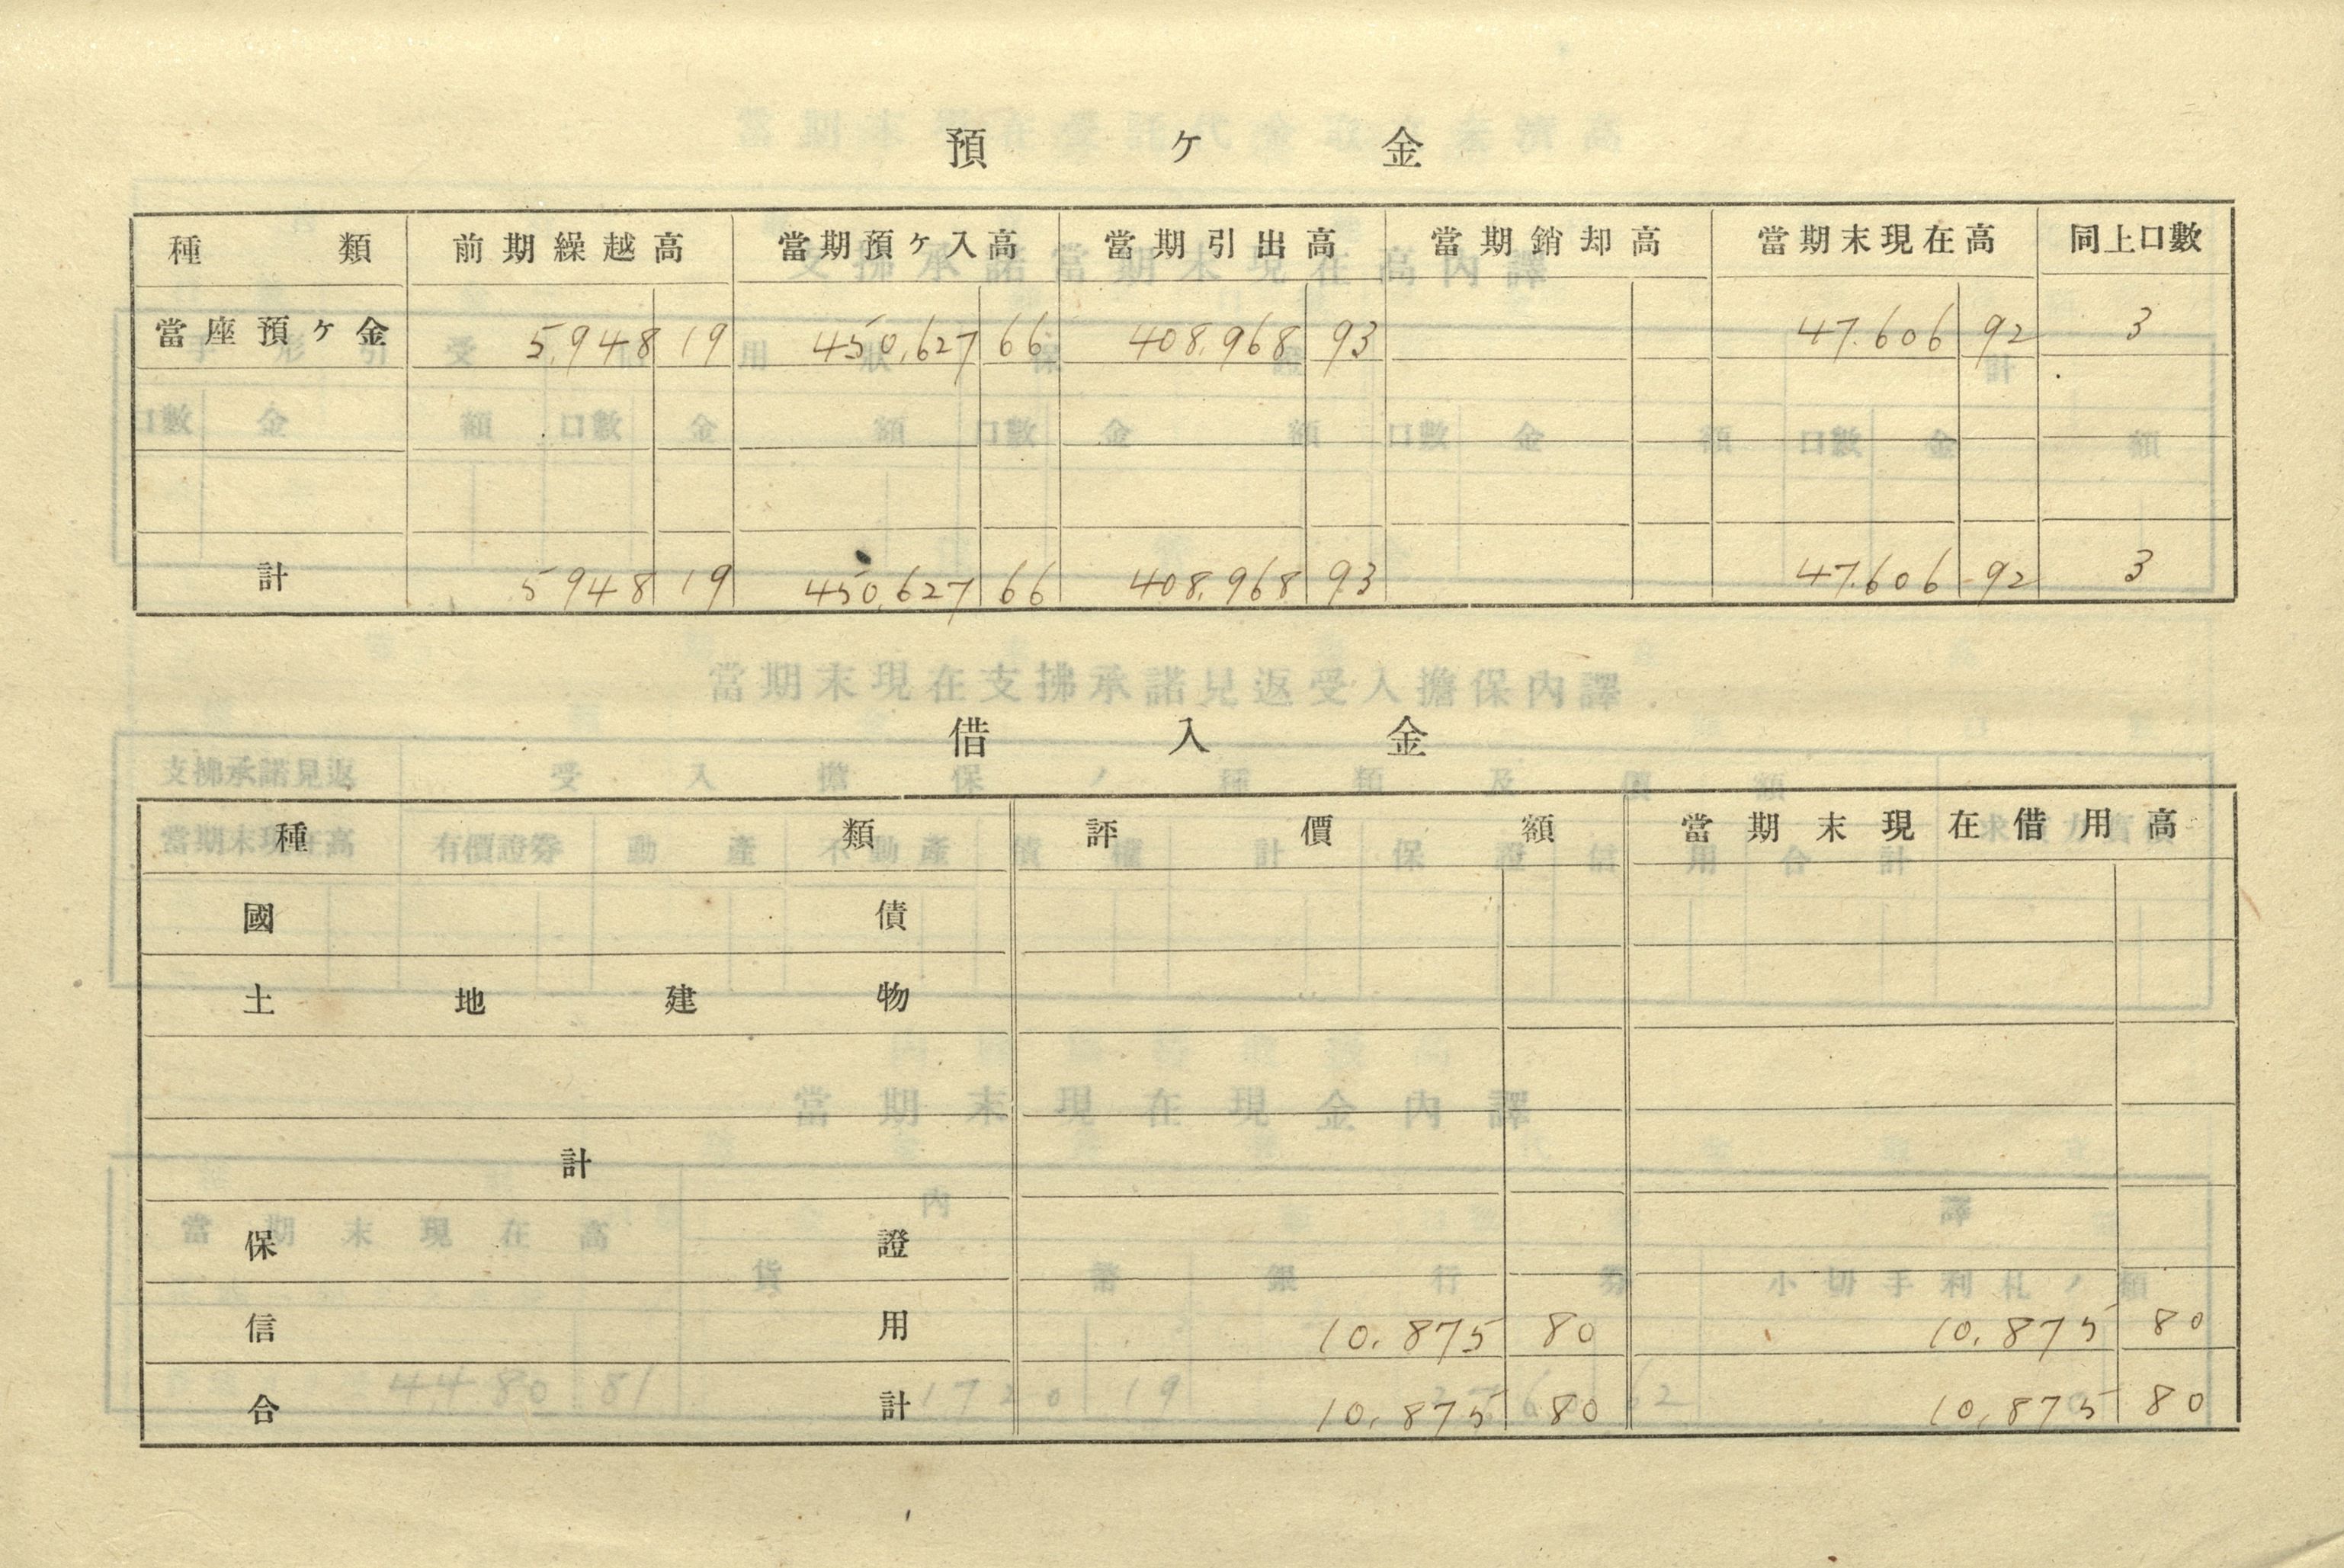 預ケ金
種類 前期繰越高 當期預ヶ入高 當期引出高 當期銷却高 當期末現在高 同上口數
當座預ヶ金 5,948 19 450,627 66 408,968 93 47.606 92 3
計 5948 19 450,627 66 408,968 93 47.606 92 3
借入金
種類 評價額 當期末現在借用高
國債
土地建物
計
保證
信用 10,875 80 10,875 80
合計 10,875 80 10,875 80